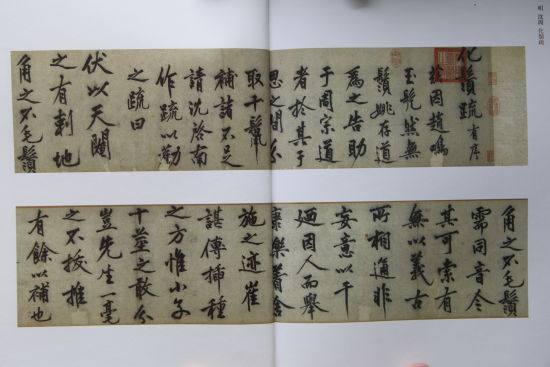 明 沈周 化鬚疏
化鬚疏 有序
茲因趙鳴
玉髡然無
鬚姚存道
為之告助
于周宗道
者於其于
思之間分
取十鬣
補諸不足
請沈啓南
作疏以勸
之疏曰
伏以天閹
之有刺地
角之不毛鬚
角之不毛鬚
需同音今
其可索有
無以義古
所相通非
妄意以干
迺因人而舉
康樂著舍
施之迹崔
諶傳插種
之方惟小子
十莖之敢分
豈先生一毫
之不拔推
有餘以補也